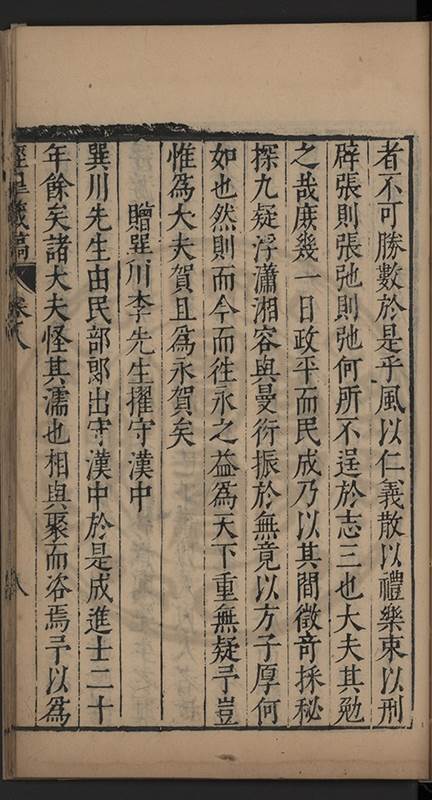 者不可勝數於是乎風以仁義散以禮樂束以刑
辟張則張弛則弛何所不逞於志三也大夫其勉
之哉庶幾一日政平而民成乃以其間徵奇採秘
探九疑浮瀟湘容與曼衍振於無竟以方子厚何
如也然則而今而徃永之益為天下重無疑予豈
惟為大夫賀且為永賀矣
贈巽川李先生擢守漢中
巽川先生由民部郎出守漢中於是成進士二十
年餘矣諸大夫怪其濡也相與聚而咨焉予以為
涇皋藏稿
卷八
八